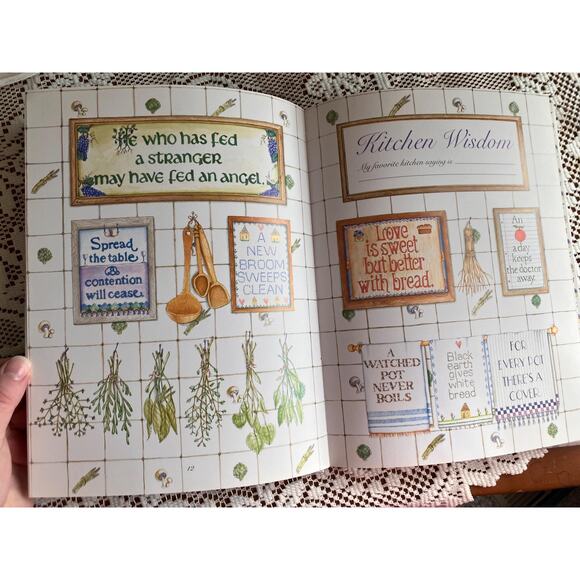 He who has fed
a stranger
may have fed an angel.
Spread
the table
&
contention
will cease.
A
NEW
BROOM
SWEEPS
CLEAN
12
Kitchen Wisdom
My favorite kitchen saying is
Love
is sweet
but better
with bread.
An
a day
keeps
the doctor
away.
A
WATCHED
POT
NEVER
BOILS
Black
earth
gives
white
bread
FOR
EVERY POT
THERE'S A
COVER